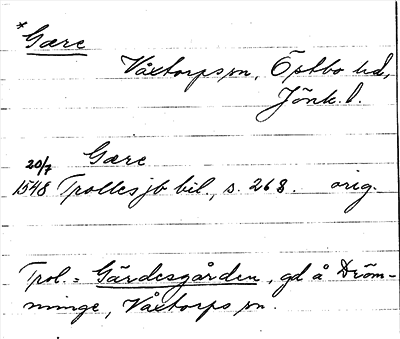 *Gære
Våxtorps sn, Östbo hd,
Jönk. l.
Gære
20/7
1548 Trolles jb bil., s. 268. orig.
Trol. = Gärdesgården, gd å Dröm-
minge, Våxtorps sn.